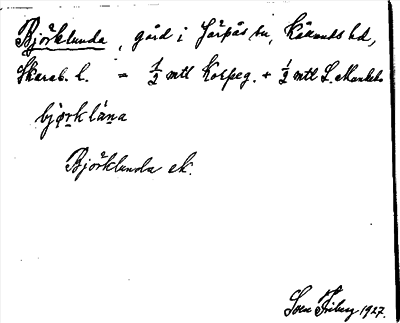 Björklunda, gård i Järpås sn, Kållands hd,
Skarab. l. = 1/2 mtl Korpeg. + 1/2 mtl L.
bjørklåna
Björklunda ek.
Sven Friberg 1927.